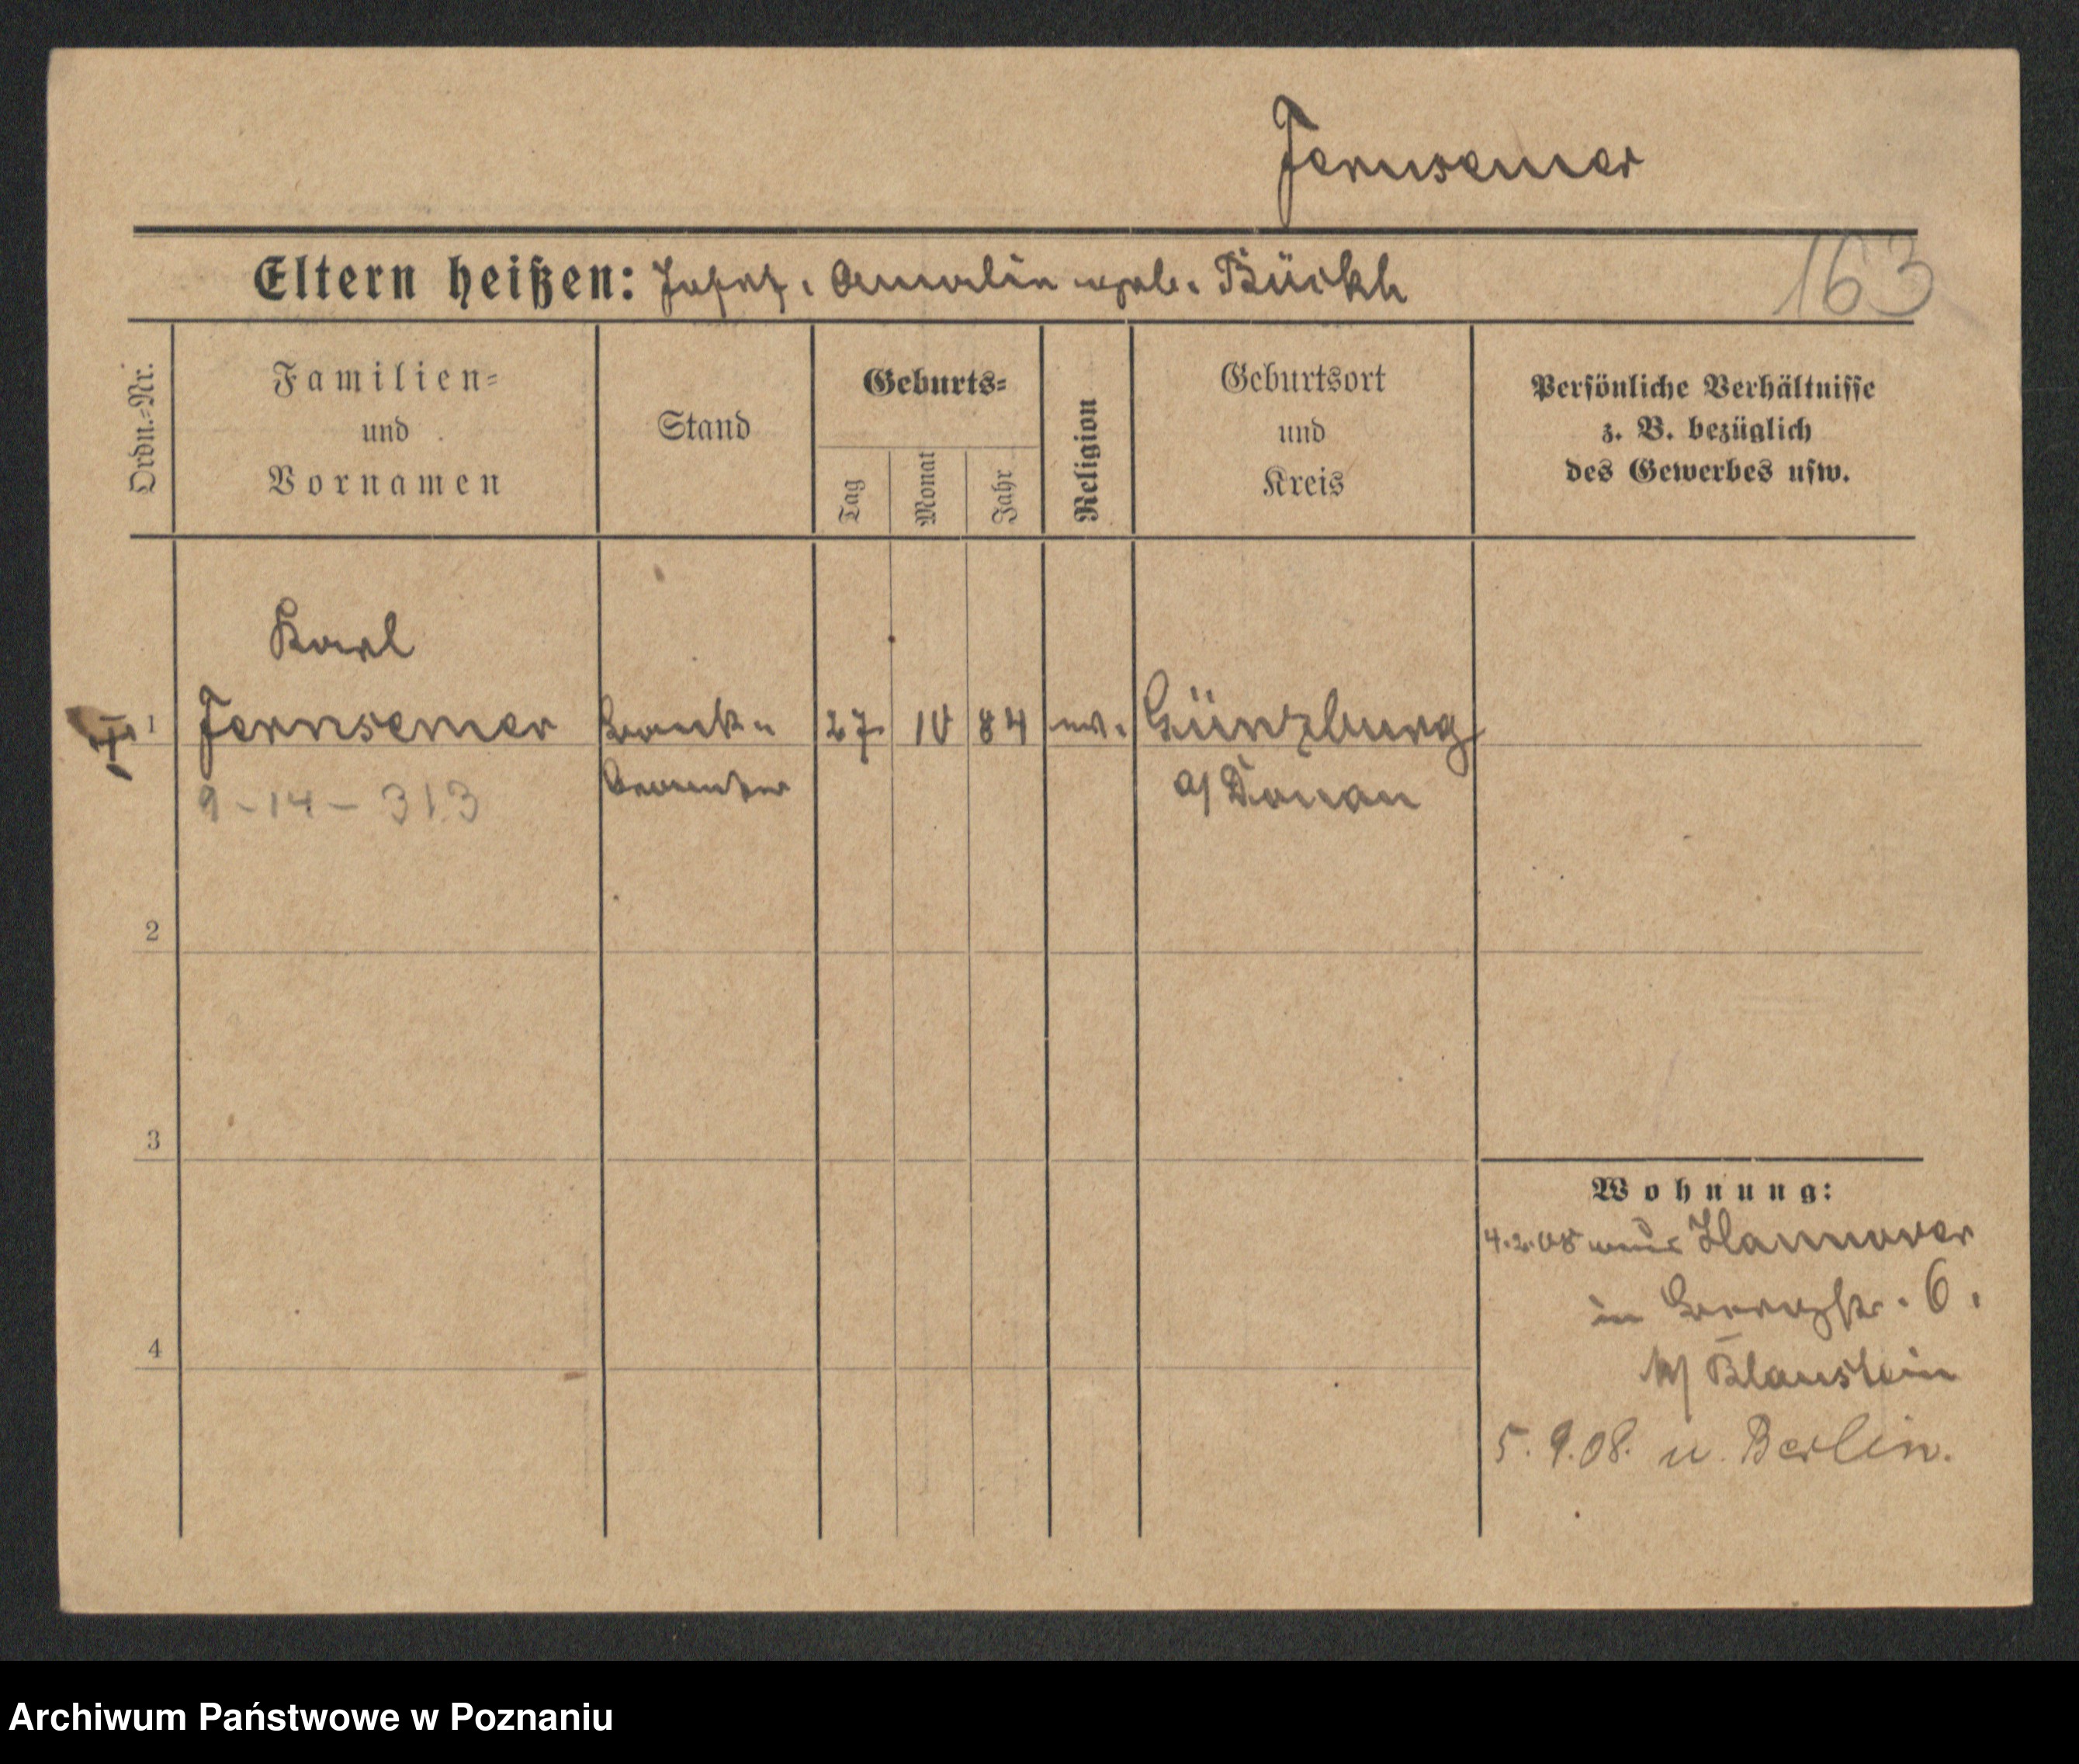 Fernsemer
163
Eltern heißen: Josef, Amalie geb. Bückh
Ordn.-Nr.
Familien-
und
Vornamen
Stand
Geburts-
Tag
Monat
Jahr
Religion
Geburtsort
und
Kreis
Persönliche Verhältnisse
z. B. bezüglich
des Gewerbes usw.
Karl
1 Fernsemer Bank- 27. IV 84 Günzburg
Beamter a/ Donau
9-14-313
2
3
4
Wohnung:
4.2.08 aus Hannover
in 6.
b/ Blaustein
5.9.08. n. Berlin.
Archiwum Państwowe w Poznaniu